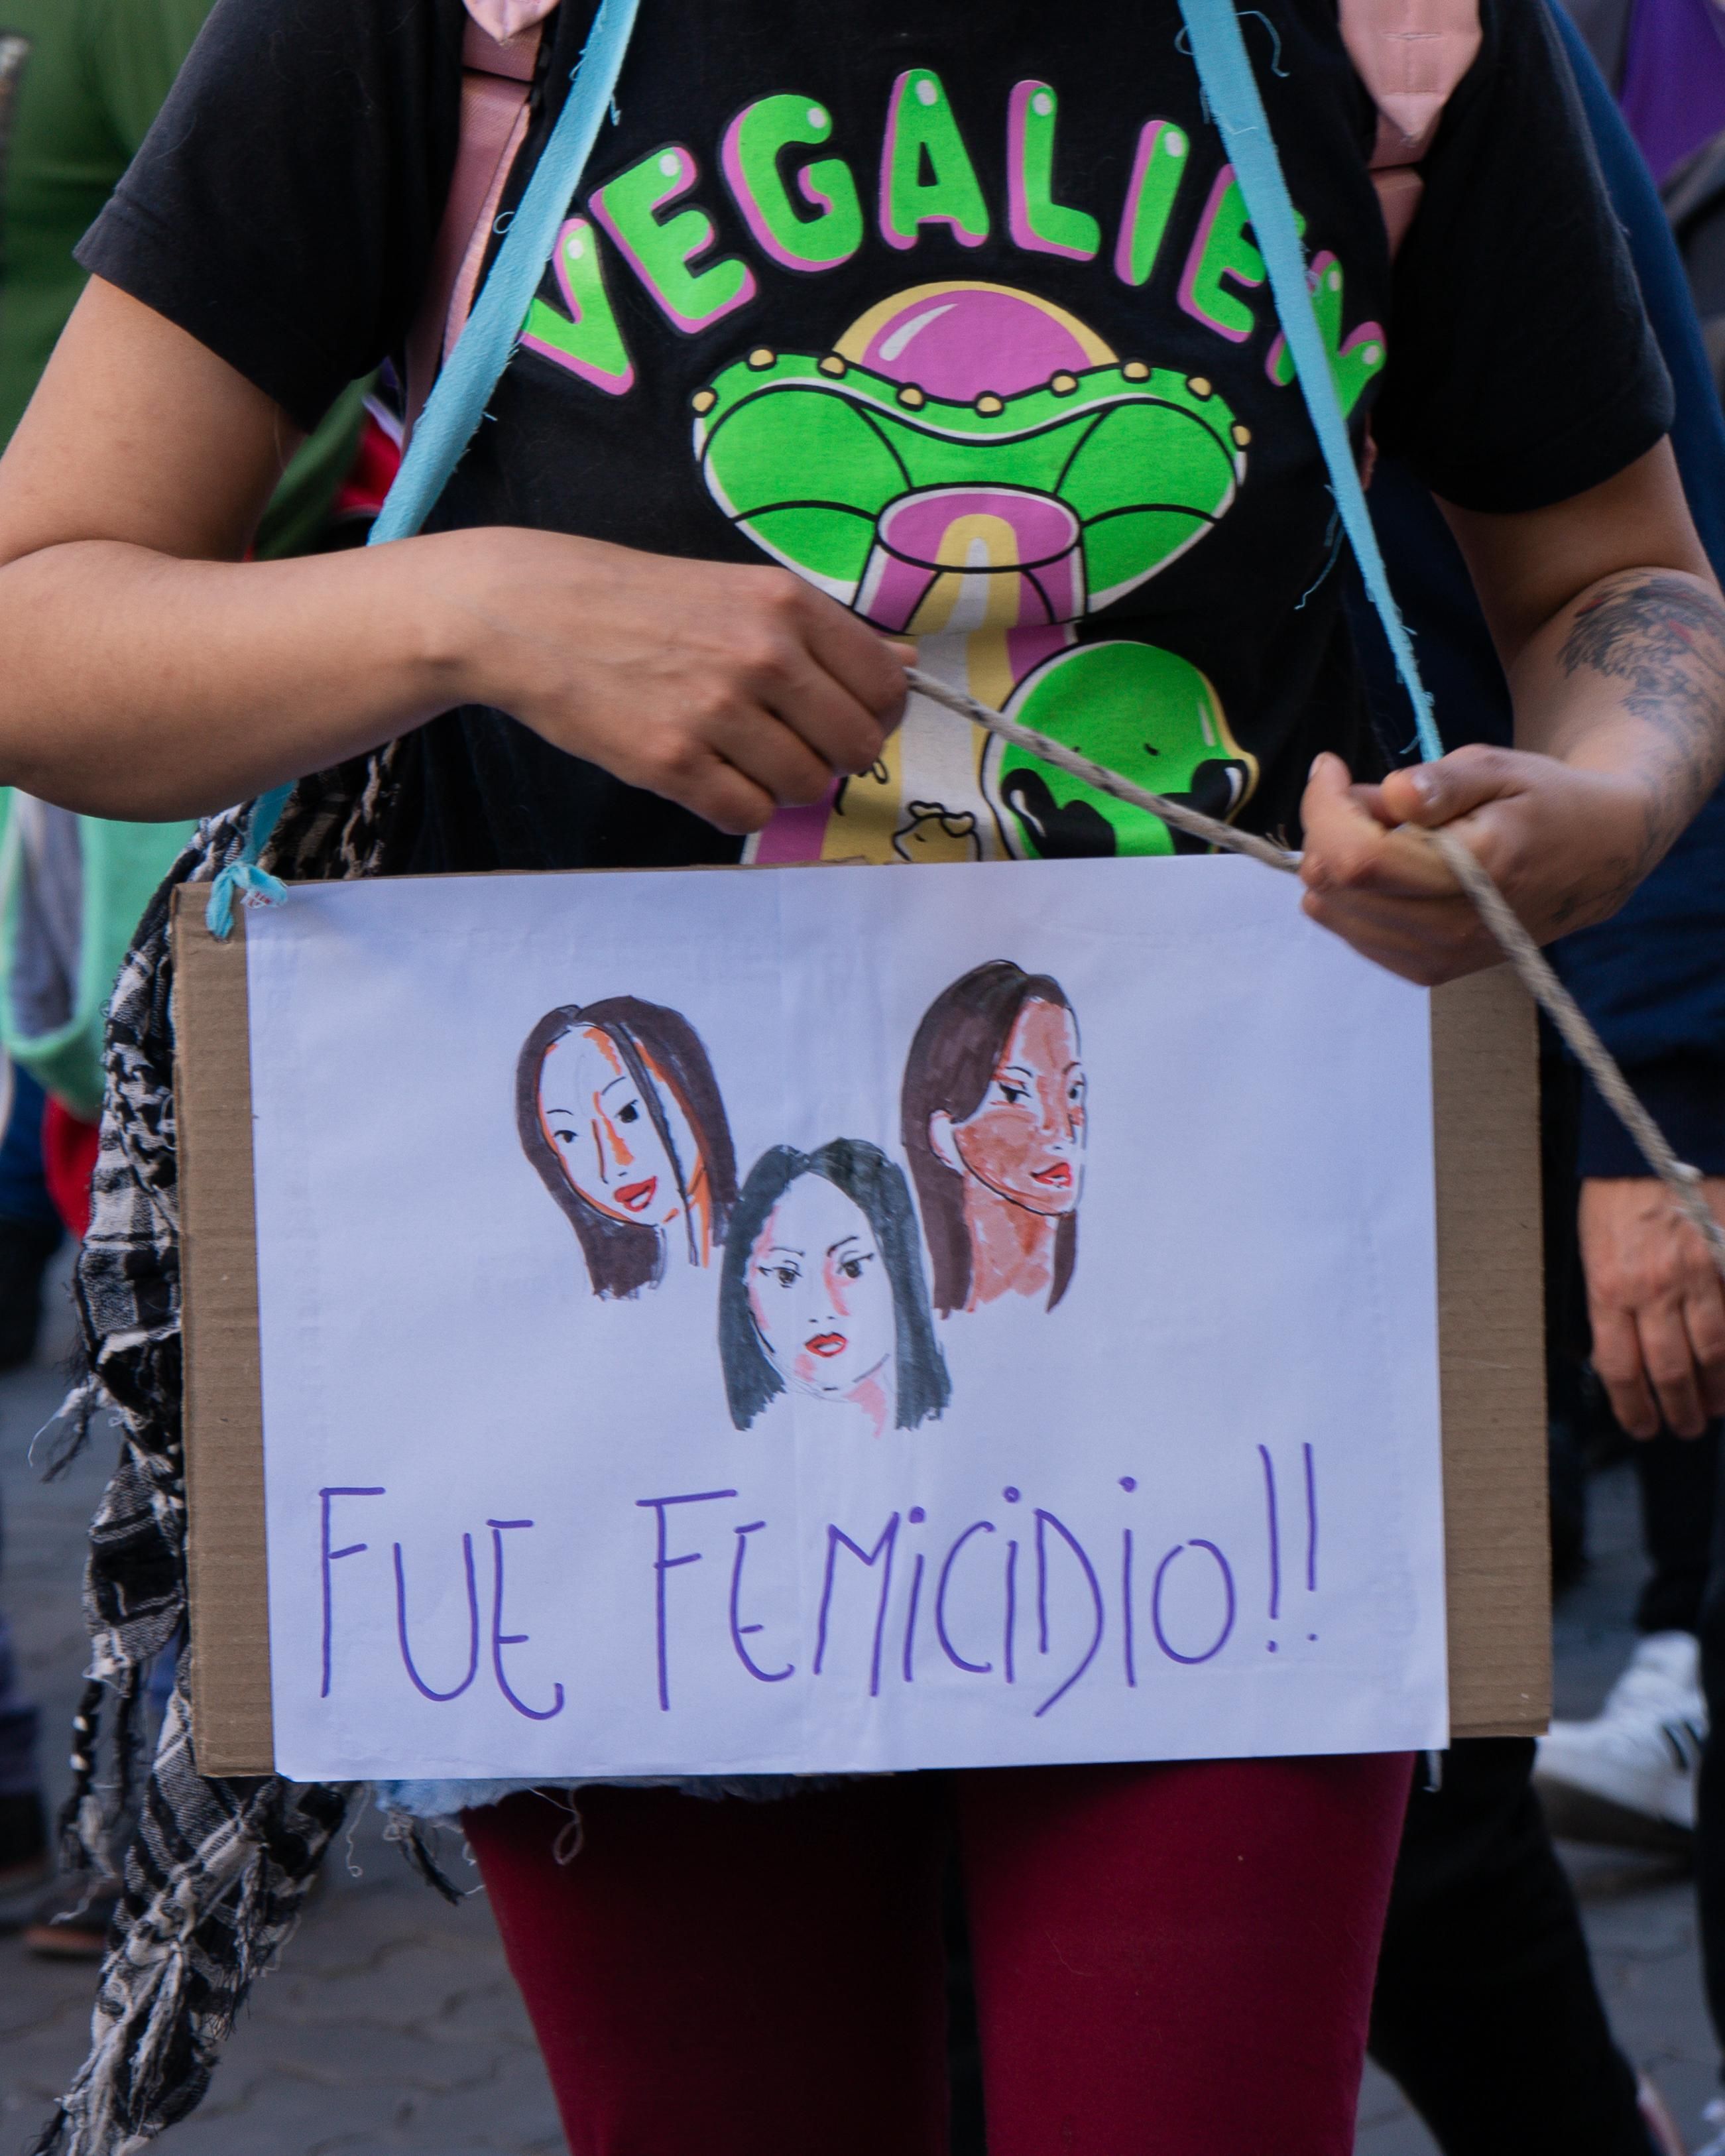 VEGALIEN
FUE FEMiCiDiO!!